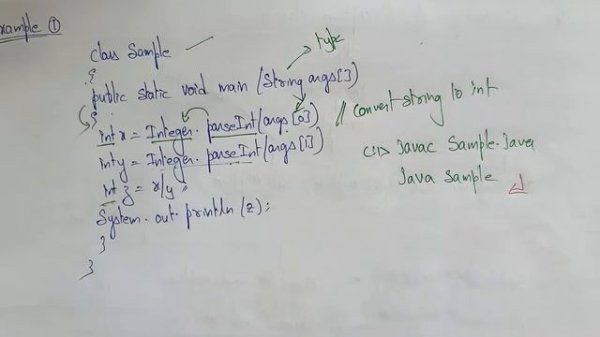 xample ①
class Sample
type
{
public static void main (String args[])
{
int x = Integer. parseInt(args[0]) // convert string to int
int y = Integer. parseInt(args[1])
c:\> Javac Sample.Java
int z = x/y;
Java Sample
System. out. println (z);
}
}